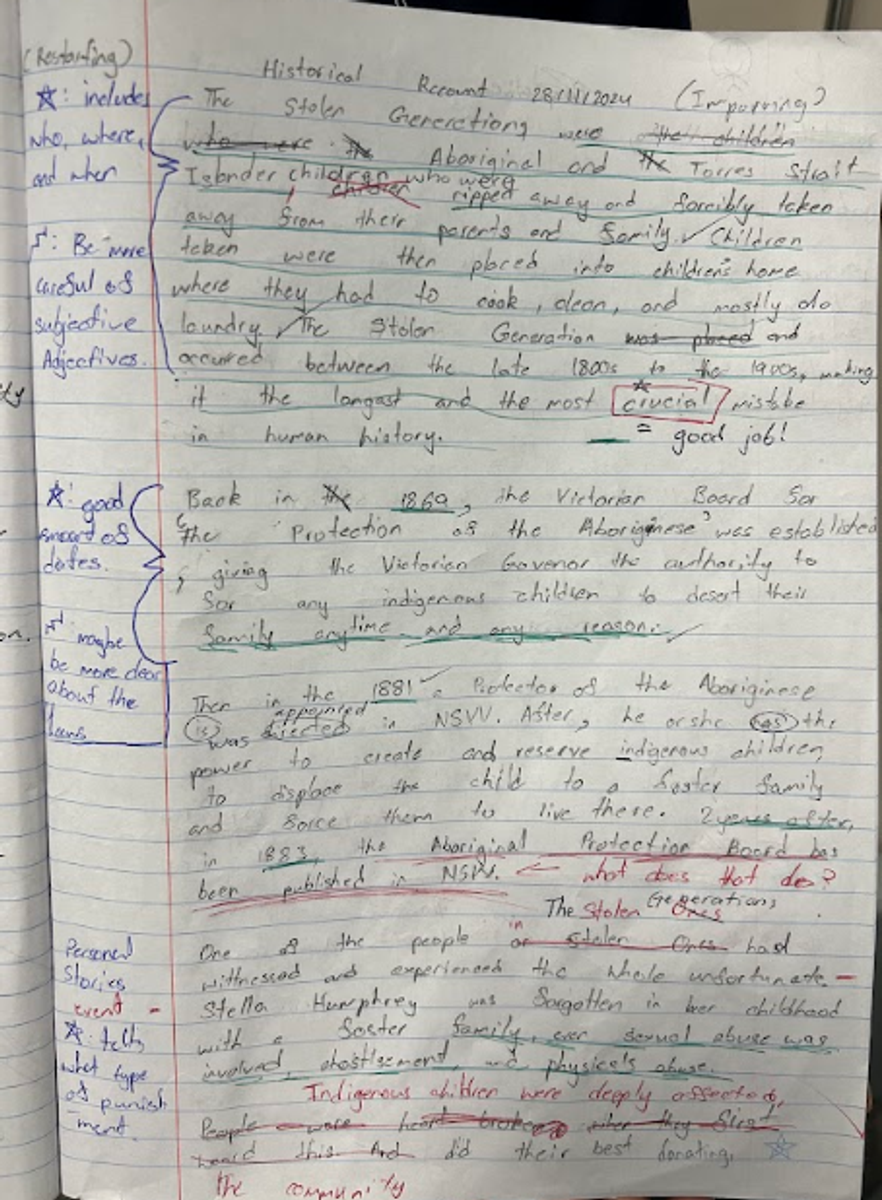 (Restarting)
Historical Recount 28/11/2024 (Improving)
☆: includes who, where, and when
The Stolen Generations were the children
who were the Aboriginal and the Torres Strait
Islander children children who were ripped away and forcibly taken
away from their parents and family. ✓ Children
taken were then placed into children's home
where they had to cook, clean, and mostly do
laundry. ✓ The Stolen Generation was placed and
occured between the late 1800s to the 1900s, making
it the longast and the most crucial mistake
in human history.
= good job!
Be more careful of subjective Adjectives.
Back in the 1869, the Victorian Board for
'The Protection of the Aboriginese' was established
, giving the Victorian Govenor the authority to
for any indigenous children to desert their
family anytime and any reason. ✓
☆: good amount of dates.
maybe be more clear about the laws
Then in the 1881 ✓ a Protector of the Aboriginese
(is) was elected appointed in NSW. After, he or she has the
power to create and reserve indigenous children
to displace the child to a foster family
and force them to live there. 2 years after,
in 1883, the Aboriginal Protection Board has
been published in NSW. ← what does that do?
One of the people in or The Stolen Generations stolen Ones had
wittnessed and experienced the whole unfortunate -
event -
Stella Humphrey was forgotten in her childhood
with a foster family, ever sexual abuse was
involved, and physicals abuse.
Personal Stories
☆: tells what type of punishment.
Indigenous children were deeply affected,
People were heart broken when they first
heard this And did their best donating. ☆
The community